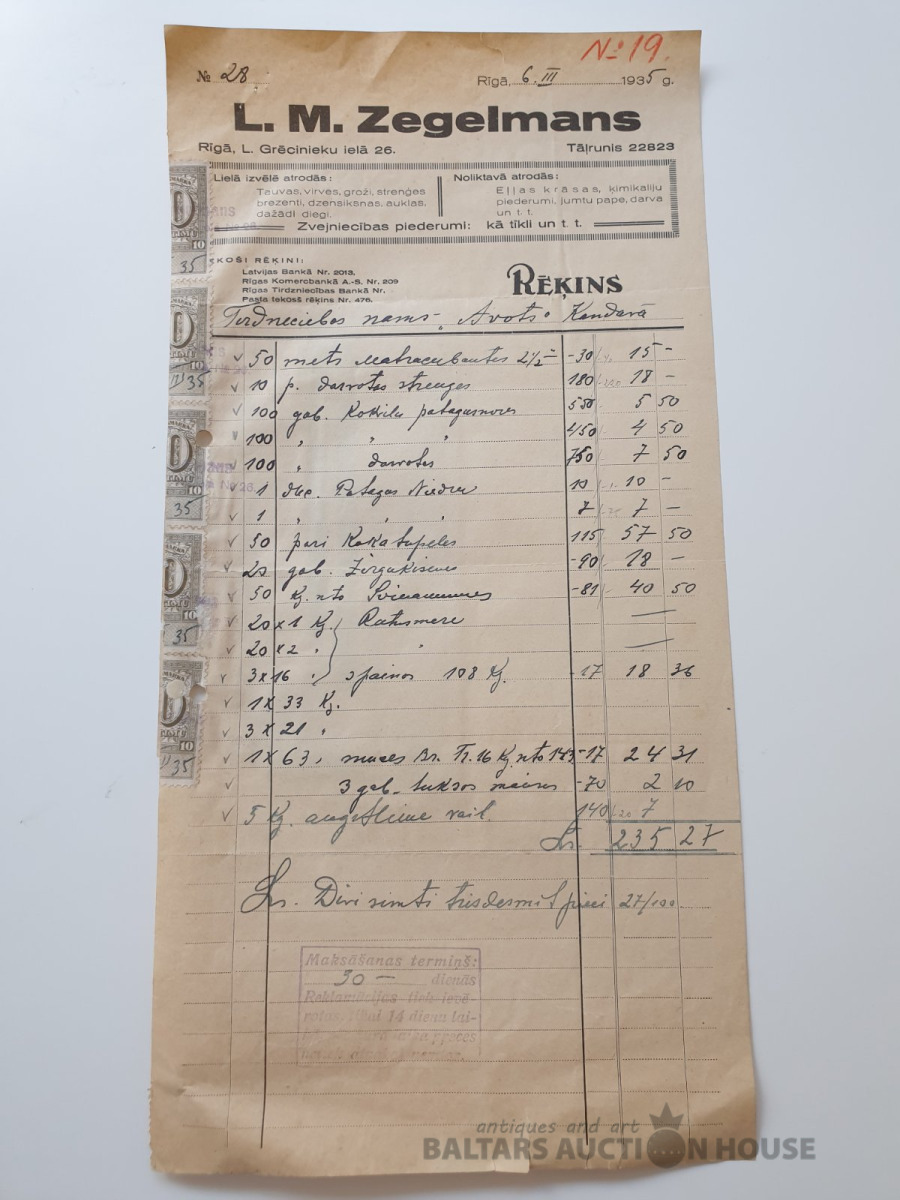 № 19.
№ 28
Rīgā, 6. III 1935 g.
L. M. Zegelmans
Rīgā, L. Grēcinieku ielā 26.
Tāļrunis 22823
Lielā izvēlē atrodās:
Tauvas, virves, groži, strenģes
brezenti, dzensiksnas, auklas,
dažādi diegi.
Noliktavā atrodās:
Eļļas krāsas, ķimikaliju
piederumi, jumtu pape, darva
un t. t.
Zvejniecības piederumi: kā tīkli un t. t.
KOŠI RĒĶINI:
Latvijas Bankā Nr. 2013,
Rīgas Komercbankā A.-S. Nr. 209
Rīgas Tirdzniecības Bankā Nr.
Pasta tekošs rēķins Nr. 476.
RĒĶINS
Tirdzniecības nams "Avots" Kandavā
50 metr. 2½ -30 15 -
10 p. darvotas strenges 180 18 -
100 gab. Kokviln. 550 5 50
100 " " " 450 4 50
100 " darvotas 750 7 50
1 10 10 -
1 " " " 7 7 -
50 pari Koka tupeles 115 57 50
20 gab. -90 18 -
50 Kg. nto -81 40 50
20 x 1 Kg. Ratusmere
20 x 2 " "
3 x 16 " spainos 108 Kg. -17 18 36
1 x 33 Kg.
3 x 21 "
1 x 63 " muces Br. Tr. 16 Kg. nto 143 -17 24 31
3 gab. tuksos -70 2 10
5 Kg. 140 7
Ls. 235 27
Ls. Divi simti trisdesmit pieci 27/100
Maksāšanas termiņš:
30 — dienās
Reklamācijas tiek ievē-
rotas tikai 14 dienu lai-
35
10
35
35
10
35
10
35
antiques and art
BALTARS AUCTION HOUSE